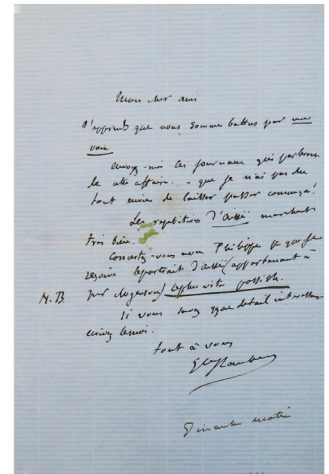 Mon cher ami
J'apprends que nous sommes battus par une
voix
envoyez-moi les journaux qui parleront
de cette affaire. - que je n'ai pas du
tout envie de laisser passer comme ça!
Les répétitions d'Aïssé marchent
très bien.
Concertez-vous avec Philippe pour que je
reçoive le portrait d'Aïssé (appartenant à
le plus vite possible.
N.B
Si vous avez quelque détail intéressant
écrivez le moi.
tout à vous
Gve Flaubert
Dimanche matin